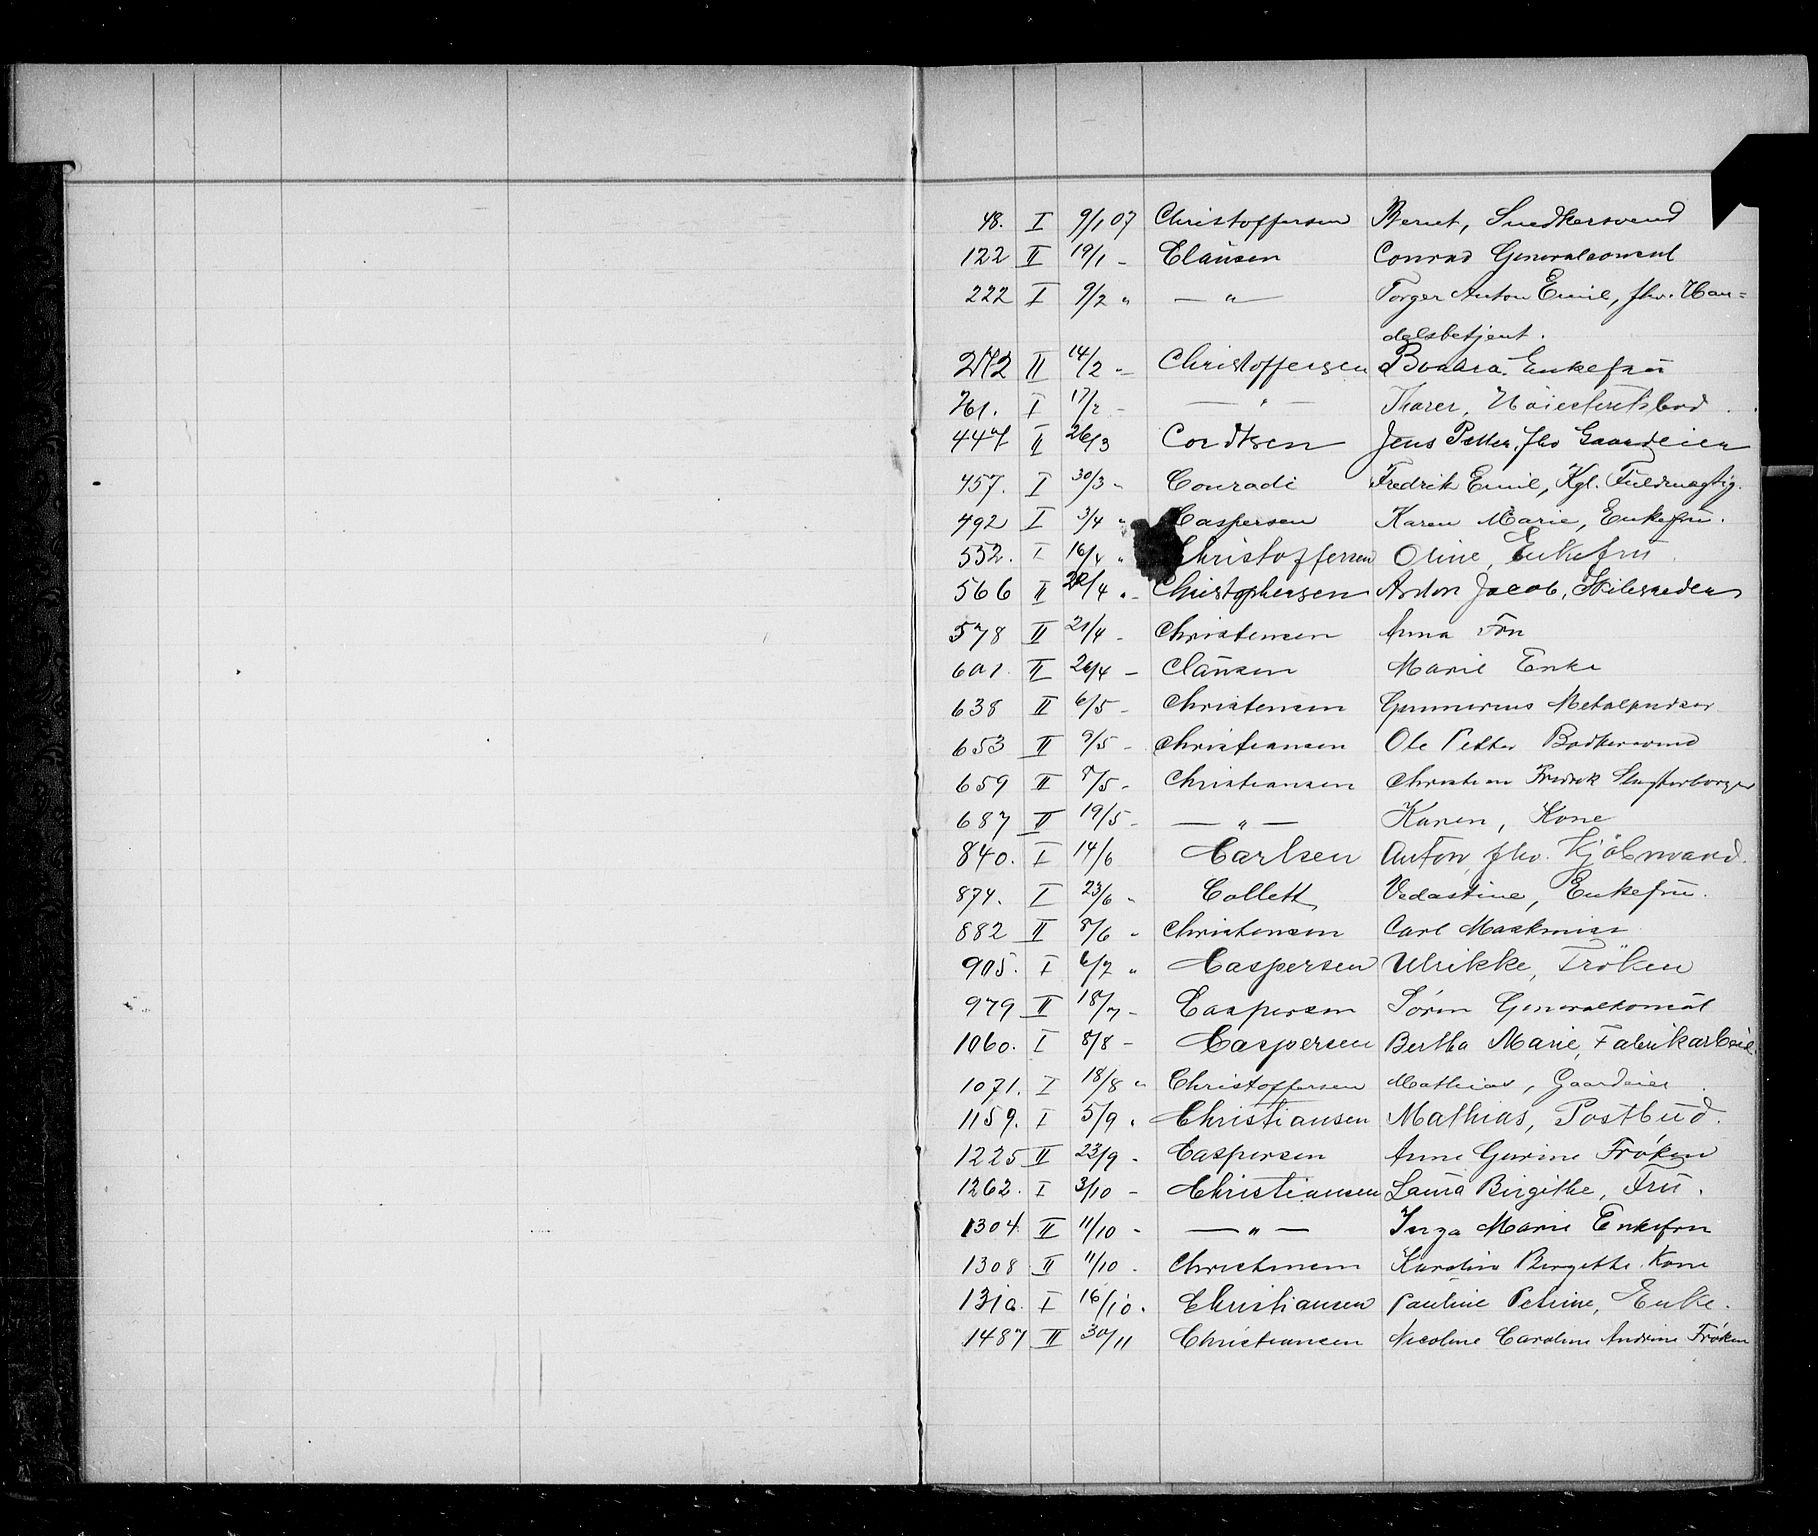 48. I 9/1 07 Christoffersen Bernt, Snedkersvend
122 II 19/1 - Clausen Conrad Generalconsul
222 I 9/2 " — " — Torger Anton Emil, fhv. Han=
delsbetjent.
272 II 14/2 - Christoffersen Enkefru
261. I 17/2 - — " — Tharer,
447 II 26/3 Cordtsen Jens Petter, fhv Gaardeier
457. I 30/3 - Conradi Fredrik Emil, Kgl. Fuldmægtig.
492 I 3/4 " Caspersen Karen Marie, Enkefru.
552. I 16/4 " Christoffersen Oline, Enkefru
566 II 22/4 - Christophersen Anton Jacob,
578 II 21/4 - Christensen Anna Fru
601 II 26/4 - Clausen Marie Enke
638 II 6/5 - Christensen Gunnerius Metalpudser
653 II 9/5 - Christiansen Ole Petter Bødkersvend
659 II 8/5 - Christiansen Christian Fredrik
687 II 19/5 - — " — Karen, Kone
840. I 14/6 Carlsen Anton, fhv. Kjøbmand.
874. I 23/6 - Collett Vedastine, Enkefru.
882 II 8/6 - Christensen Carl Maskinist
905. I 6/7 " Caspersen Ulrikke, Frøken
979 II 18/7 - Caspersen Søren Generalkonsul
1060. I 8/8 - Caspersen Bertha Marie, Fabrikarbeid.
1071. I 18/8 " Christoffersen Mathias, Gaardeier
1159. I 5/9 " Christiansen Mathias, Postbud.
1225 II 23/9 - Caspersen Anne Gurine Frøken
1262. I 3/10 - Christiansen Laura Birgithe, Fru.
1304 II 11/10 - — " — Inga Marie Enkefru
1308 II 11/10 - Christensen Karoline Birgitte. Kone
1310. I 16/10. Christiansen Pauline Petrine, Enke.
1487 II 30/11 Christiansen Nicoline Caroline Andrine Frøken